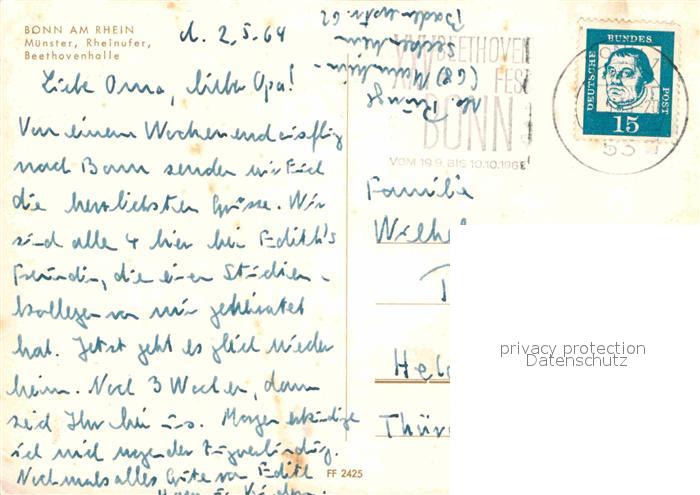 BONN AM RHEIN
Münster, Rheinufer,
Beethovenhalle
d. 2.5.64
Liebe Oma, lieber Opa!
Von einem Wochenendausflug
nach Bonn senden wir Euch
die herzlichsten Grüsse. Wir
sind alle 4 hier bei Edith's
Freundin, die einen Studien-
kollegen von mir geheiratet
hat. Jetzt geht es gleich wieder
heim. Noch 3 Wochen, dann
seid Ihr bei uns. Morgen erkundige
ich mich wegen der Zugverbindung.
Nochmals alles Gute von Edith
FF 2425
(68) Mannheim-
Seckenheim
BEETHOVEN
FEST
BONN
VOM 19.9. BIS 10.10.196
DEUTSCHE BUNDES POST
15
Familie
Wilhel
T
Hel
Thür
privacy protection
Datenschutz